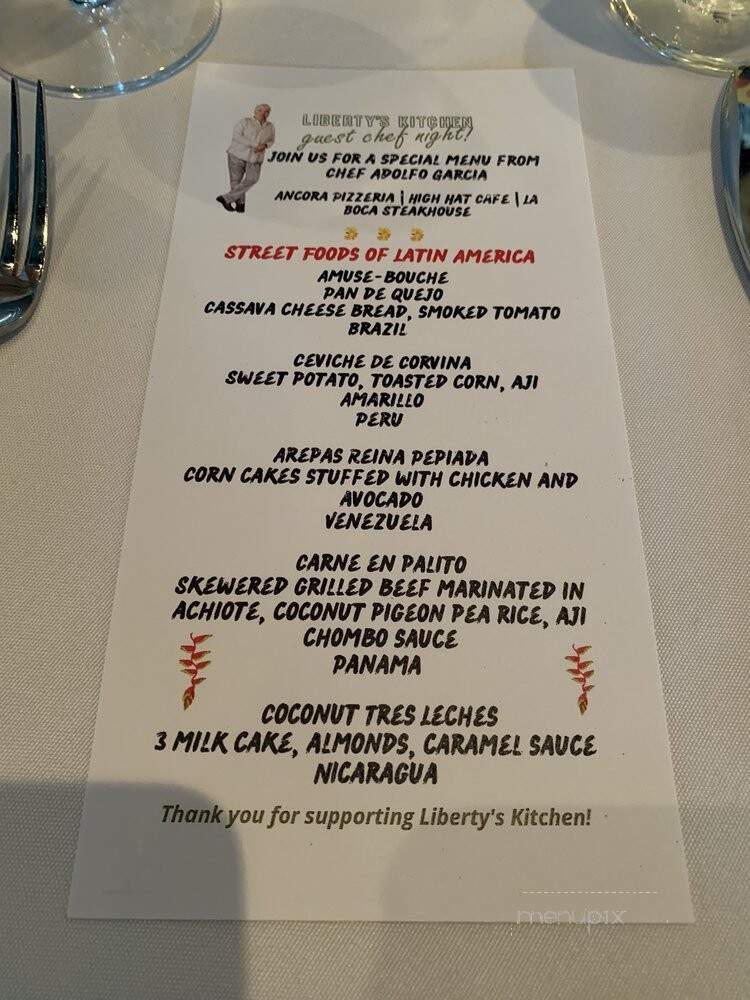 LIBERTY'S KITCHEN
guest chef night!
JOIN US FOR A SPECIAL MENU FROM
CHEF ADOLFO GARCIA
ANCORA PIZZERIA | HIGH HAT CAFE | LA
BOCA STEAKHOUSE
STREET FOODS OF LATIN AMERICA
AMUSE-BOUCHE
PAN DE QUEJO
CASSAVA CHEESE BREAD, SMOKED TOMATO
BRAZIL
CEVICHE DE CORVINA
SWEET POTATO, TOASTED CORN, AJI
AMARILLO
PERU
AREPAS REINA PEPIADA
CORN CAKES STUFFED WITH CHICKEN AND
AVOCADO
VENEZUELA
CARNE EN PALITO
SKEWERED GRILLED BEEF MARINATED IN
ACHIOTE, COCONUT PIGEON PEA RICE, AJI
CHOMBO SAUCE
PANAMA
COCONUT TRES LECHES
3 MILK CAKE, ALMONDS, CARAMEL SAUCE
NICARAGUA
Thank you for supporting Liberty's Kitchen!
menupix